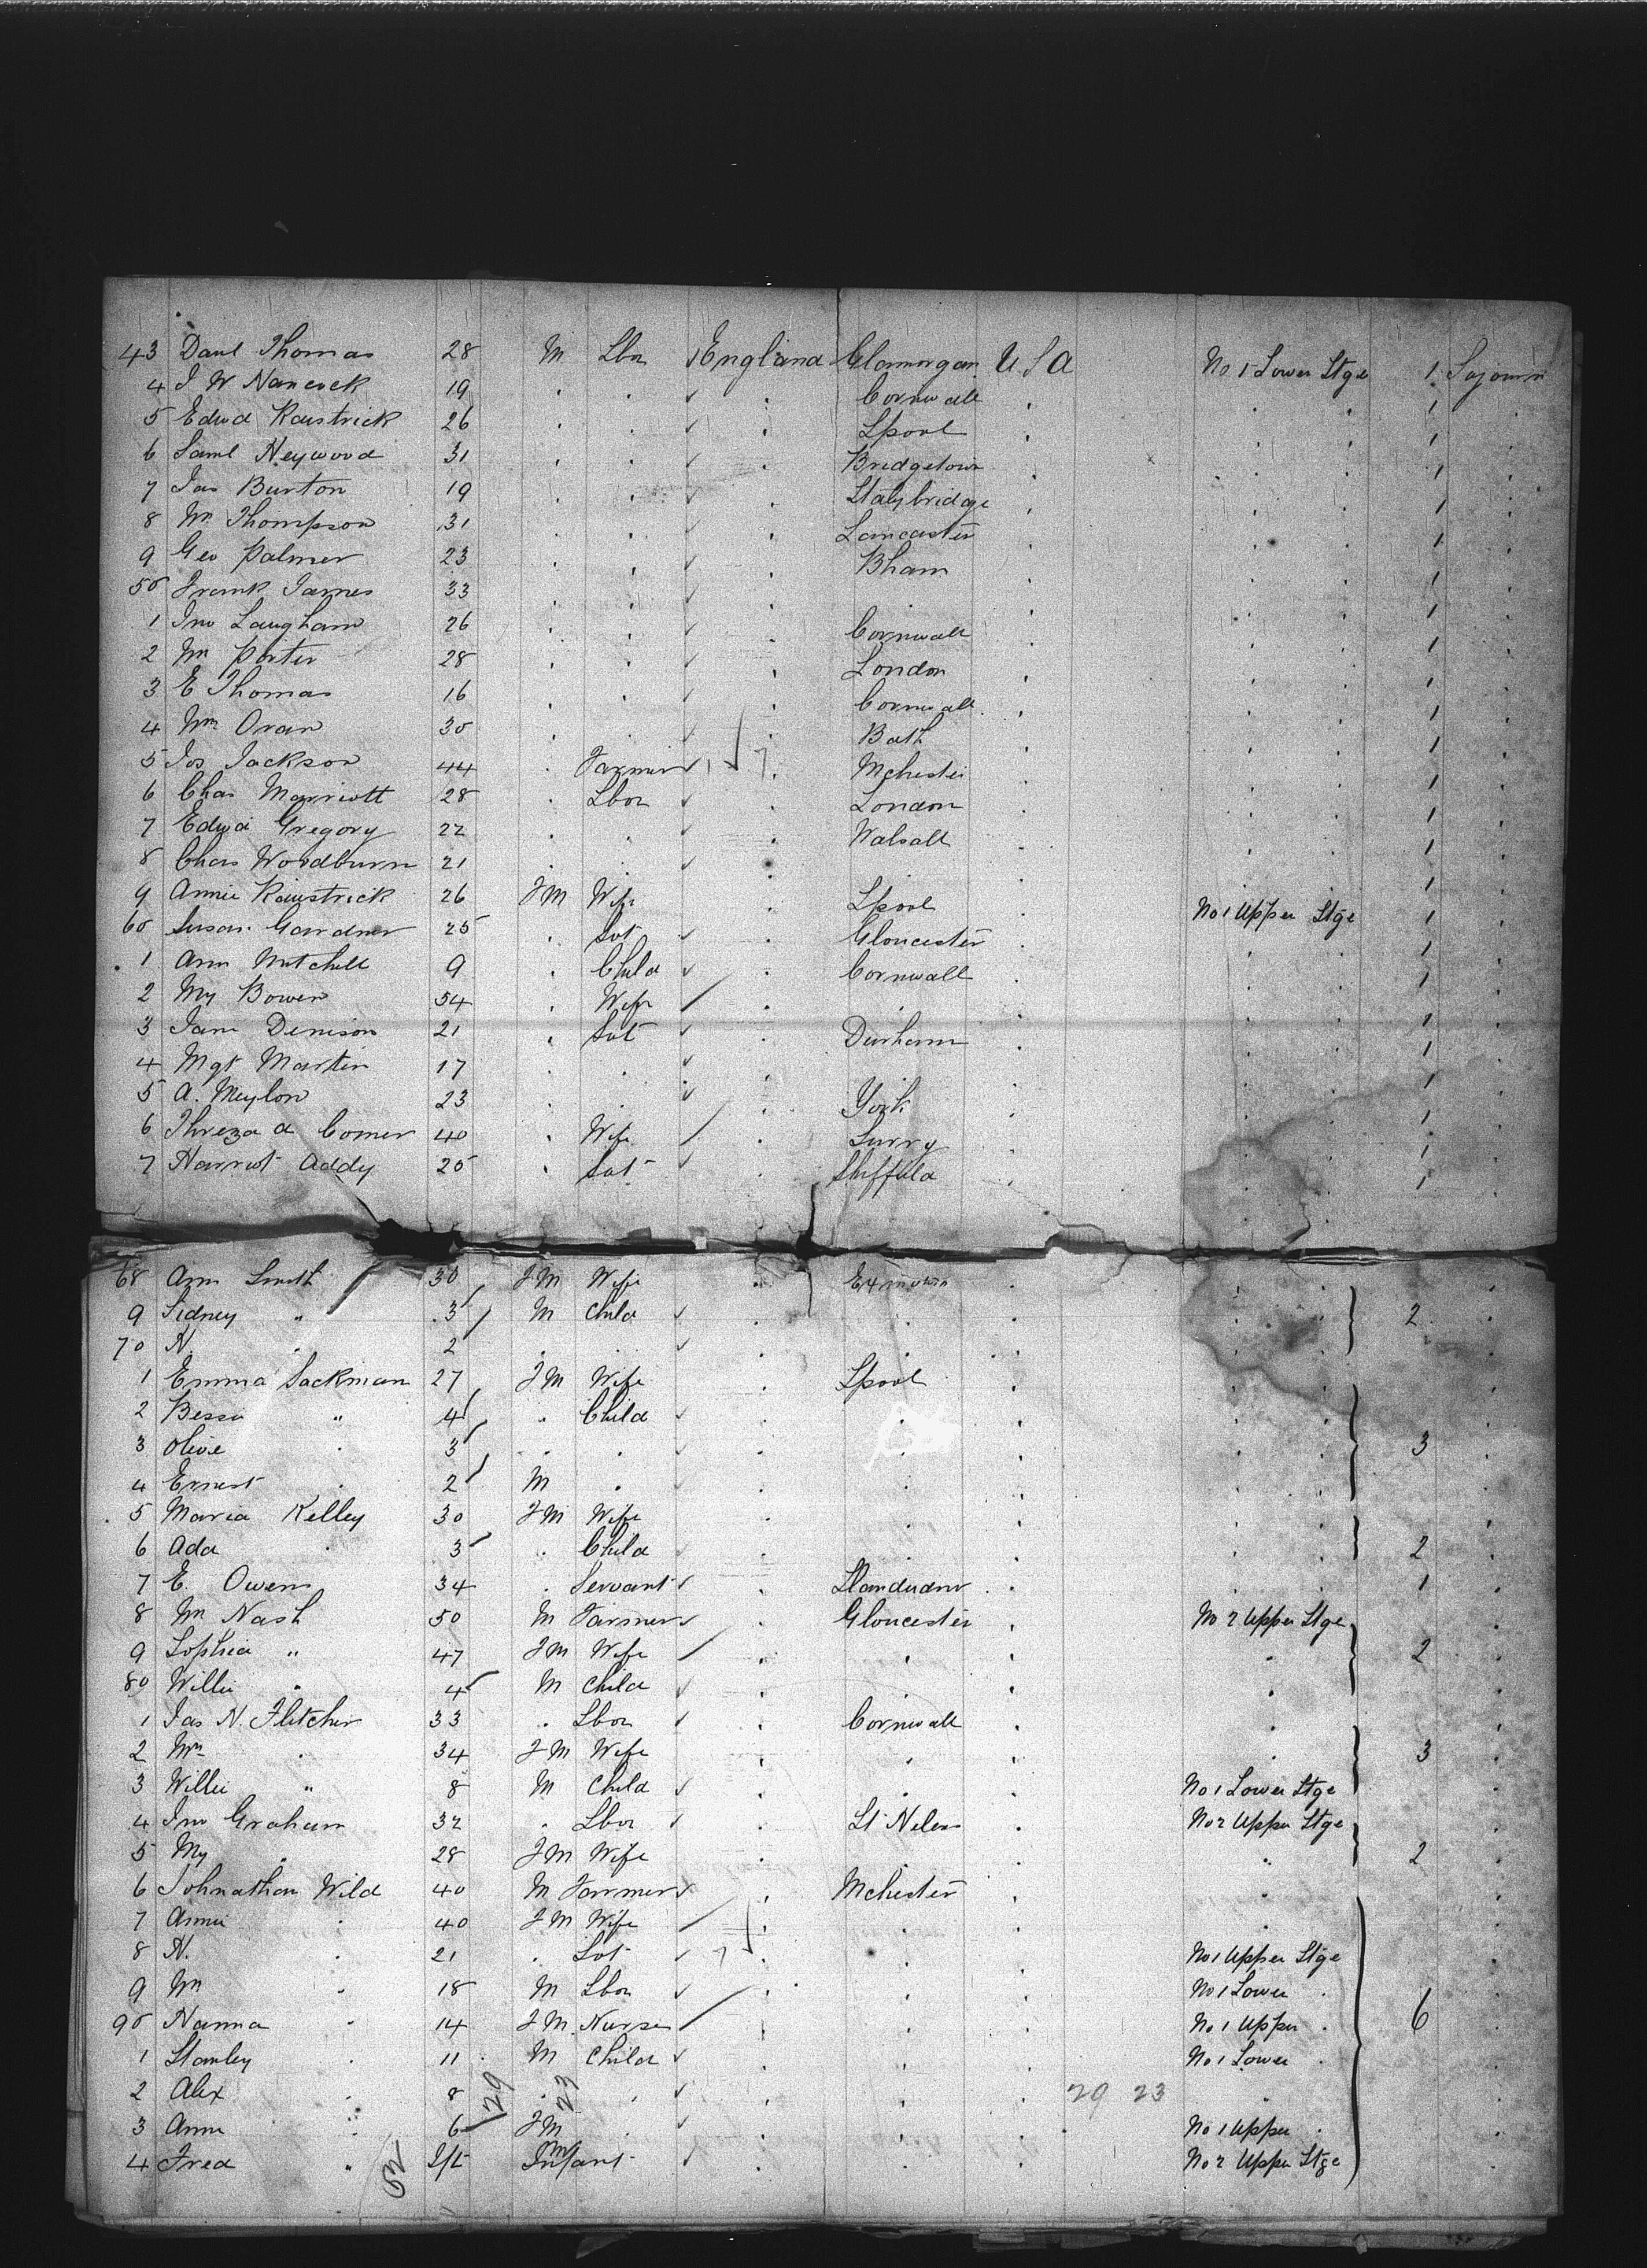 43 Danl Thomas 28 M Lbr England Glamorgan U S A No 1 Lower Stge 1 Sojourn
4 J W Hancock 19 Cornwall 1
5 Edwd Rawstrick 26 Lpool 1
6 Saml Heywood 31 Bridgetown 1
7 Jas Burton 19 Stalybridge 1
8 Wm Thompson 31 Lancaster 1
9 Geo Palmer 23 Bham 1
50 Frank James 33 1
1 Jno Laugham 26 Cornwall 1
2 Wm Porter 28 London 1
3 E Thomas 16 Cornwall 1
4 Wm Oran 30 Bath 1
5 Jos Jackson 44 Farmer Mchester 1
6 Chas Marriott 28 Lbor London 1
7 Edwd Gregory 22 Walsall 1
8 Chas Woodburn 21 1
9 Annie Rawstrick 26 F M Wife Lpool No 1 Upper Stge 1
60 Susan Gardner 25 Svt Gloucester 1
1 Ann Mitchell 9 Child Cornwall 1
2 My Bowen 54 Wife 1
3 Jane Denison 21 Svt Durham 1
4 Mgt Martin 17 1
5 A. Meylon 23 York 1
6 Threza A Comer 40 Wife Surry 1
7 Harriot Addy 25 Svt Sheffield 1
68 Ann Smith 30 F M Wife
9 Sidney " 3 M Child 2
70 H. 2
1 Emma Sackman 27 F M Wife Lpool
2 Bessie " 4 Child
3 Olive 3 3
4 Ernest 2 M
5 Maria Kelley 30 F M Wife
6 Ada 3 " Child 2
7 E. Owens 34 Servant Llandudno 1
8 Wm Nash 50 M Farmer Gloucester No 2 Upper Stge
9 Sophia " 47 F M Wife 2
80 Willie " 4 M Child
1 Jas N. Fletcher 33 " Lbor Cornwall
2 Mrs 34 F M Wife 3
3 Willie " 8 M Child No 1 Lower Stge
4 Jno Graham 32 Lbor St Helens No 2 Upper Stge
5 My 28 F M Wife " 2
6 Johnathan Wild 40 M Farmer Mchester "
7 Annie 40 F M Wife
8 H. 21 Svt No 1 Upper Stge
9 Wm 18 M Lbor No 1 Lower
90 Hanna 14 F M Nurse No 1 Upper 6
1 Stanley 11 M Child No 1 Lower
2 Alex 8 29 23
3 Anne " 6 F M No 1 Upper
4 Fred " Inft M Infant No 2 Upper Stge
29 23